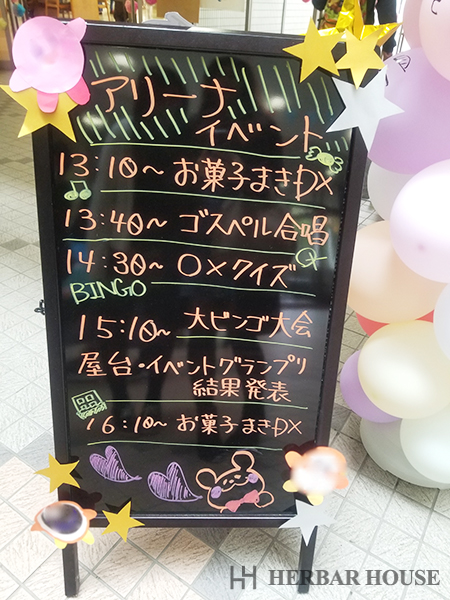 アリーナ
イベント
13:10~ お菓子まきDX
13:40~ ゴスペル合唱
14:30~ ○×クイズ
BINGO
15:10~ 大ビンゴ大会
屋台・イベントグランプリ
結果発表
16:10~ お菓子まきDX
HERBAR HOUSE